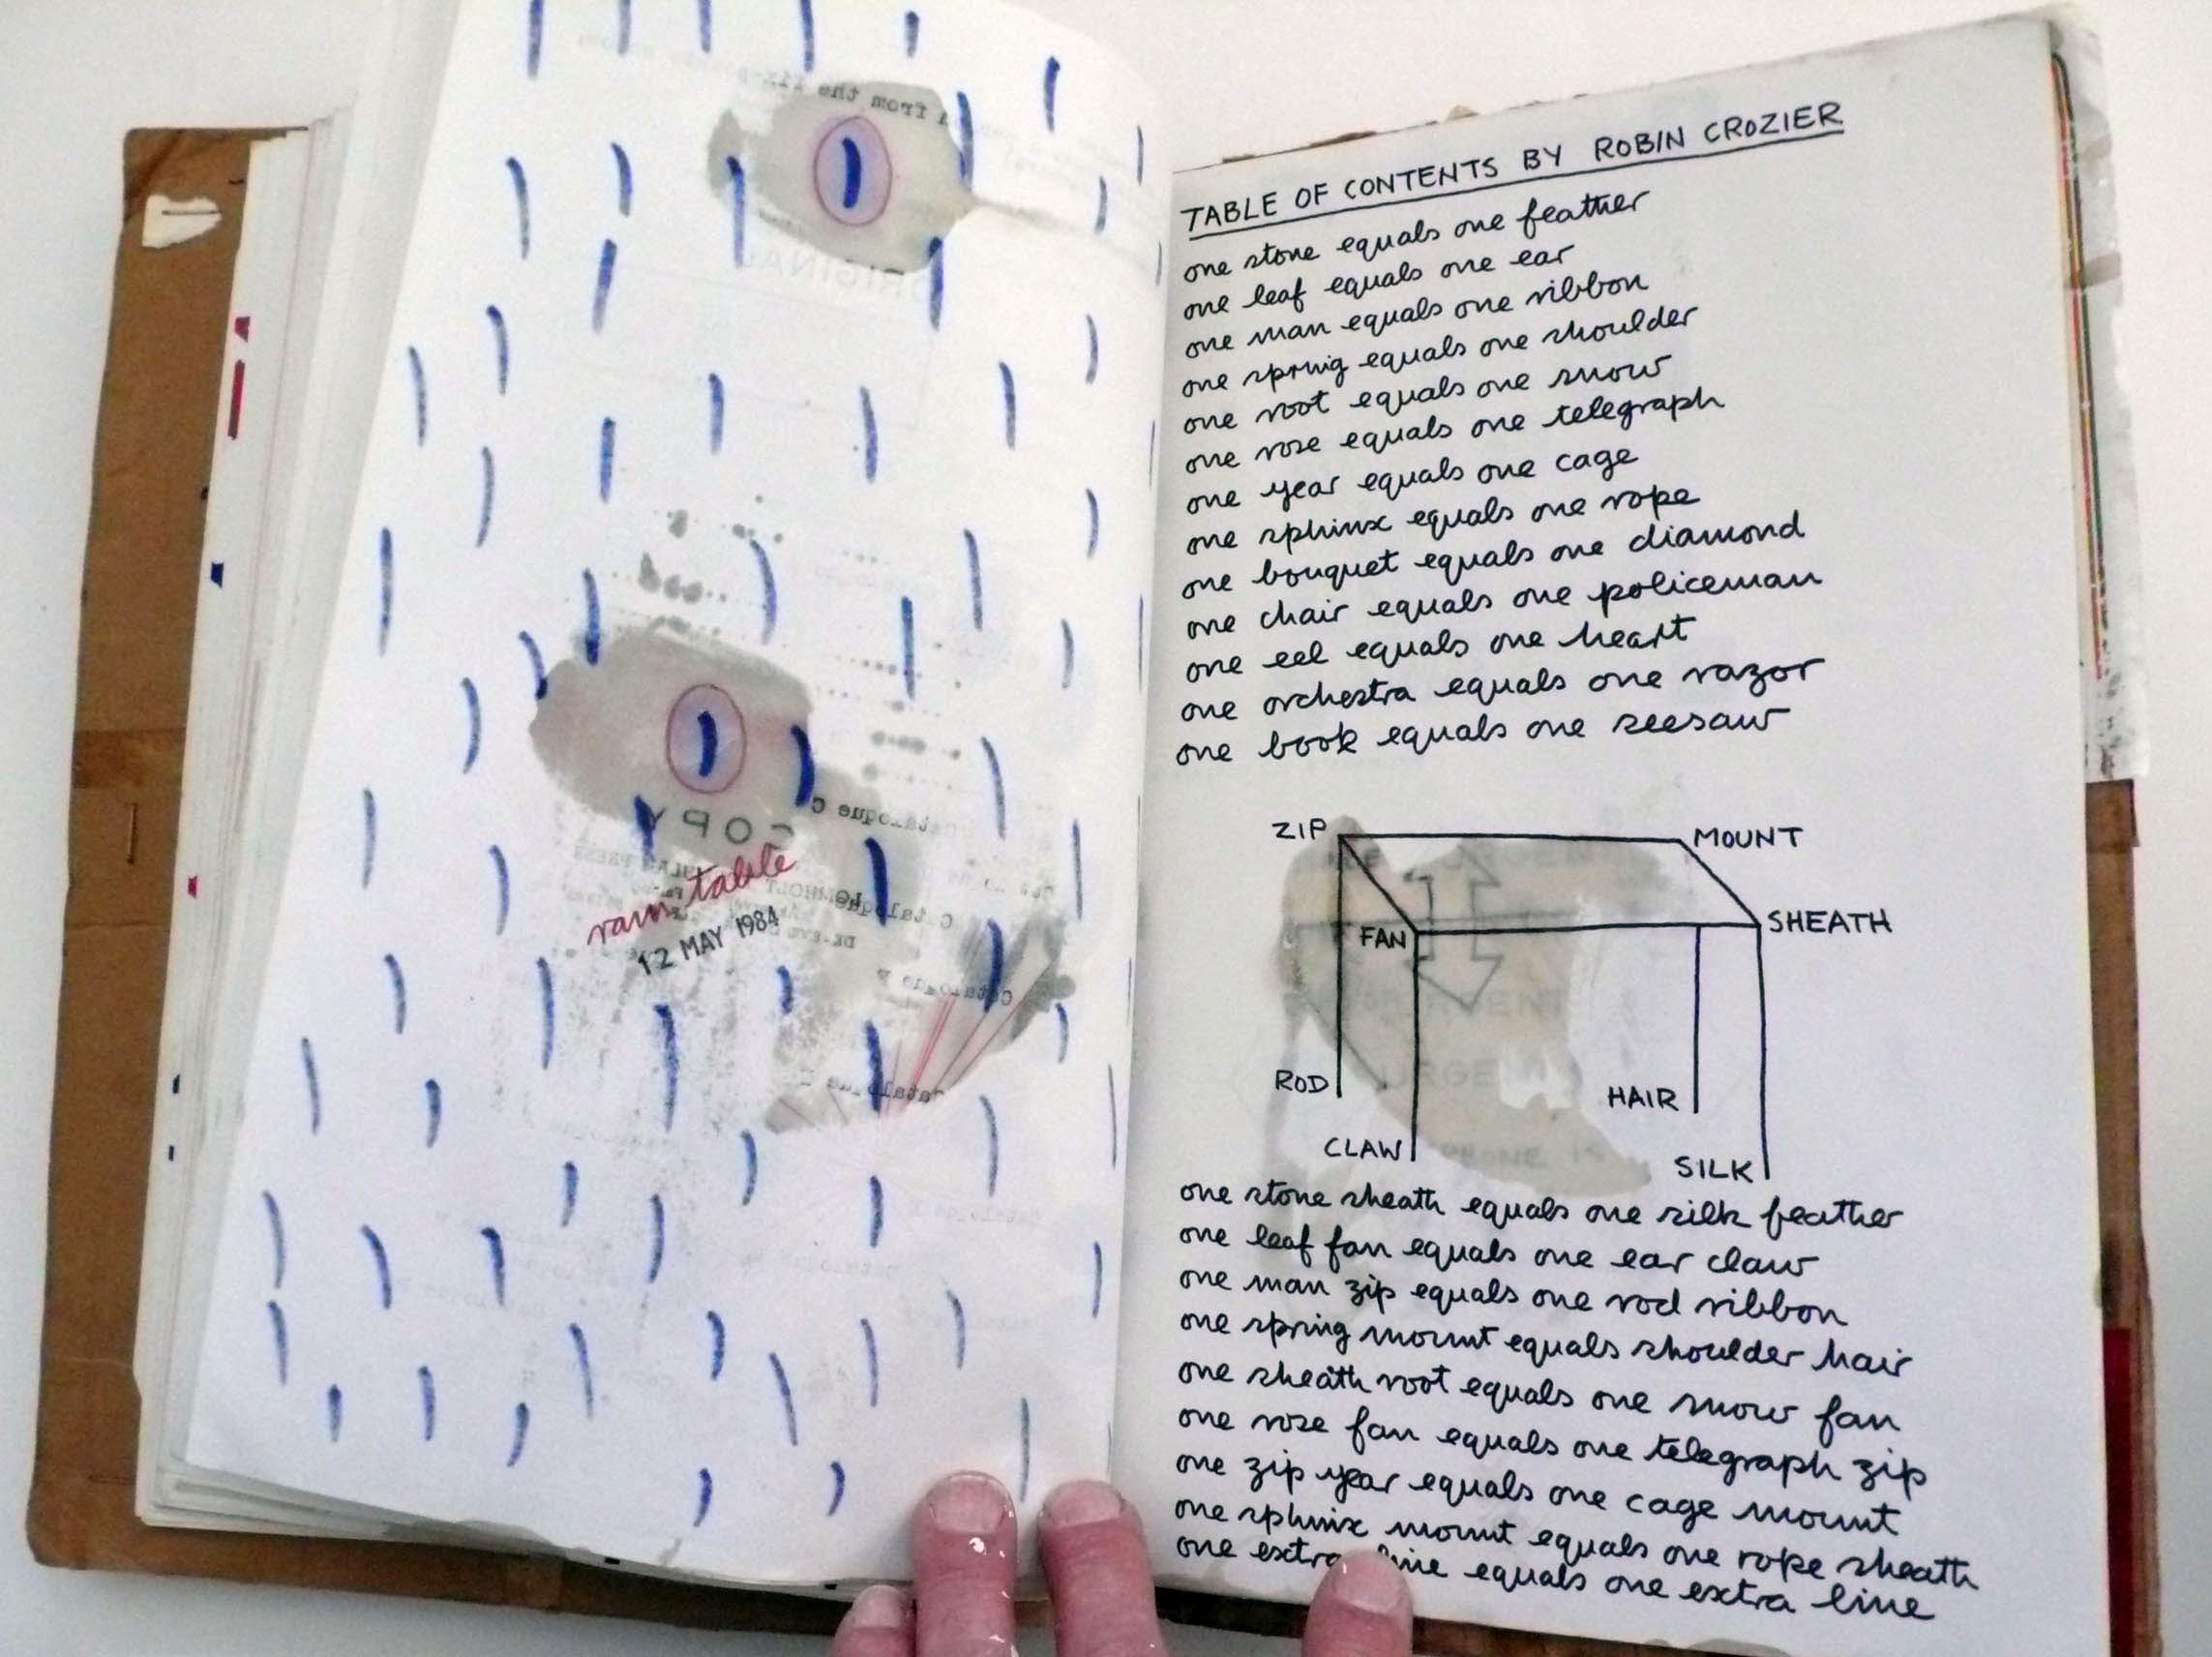 from the
ORIGINAL
COPY
Catalogue C
rain table
12 MAY 1984
Catalogue
Catalogue
Catalogue
TABLE OF CONTENTS BY ROBIN CROZIER
one stone equals one feather
one leaf equals one ear
one man equals one ribbon
one spring equals one shoulder
one root equals one snow
one rose equals one telegraph
one year equals one cage
one sphinx equals one rope
one bouquet equals one diamond
one chair equals one policeman
one eel equals one heart
one orchestra equals one razor
one book equals one seesaw
ZIP
MOUNT
FAN
SHEATH
ROD
HAIR
CLAW
SILK
URGENT
URGENT
URGENT
PHONE
one stone sheath equals one silk feather
one leaf fan equals one ear claw
one man zip equals one rod ribbon
one spring mount equals shoulder hair
one sheath root equals one snow fan
one rose fan equals one telegraph zip
one zip year equals one cage mount
one sphinx mount equals one rope sheath
one extra line equals one extra line